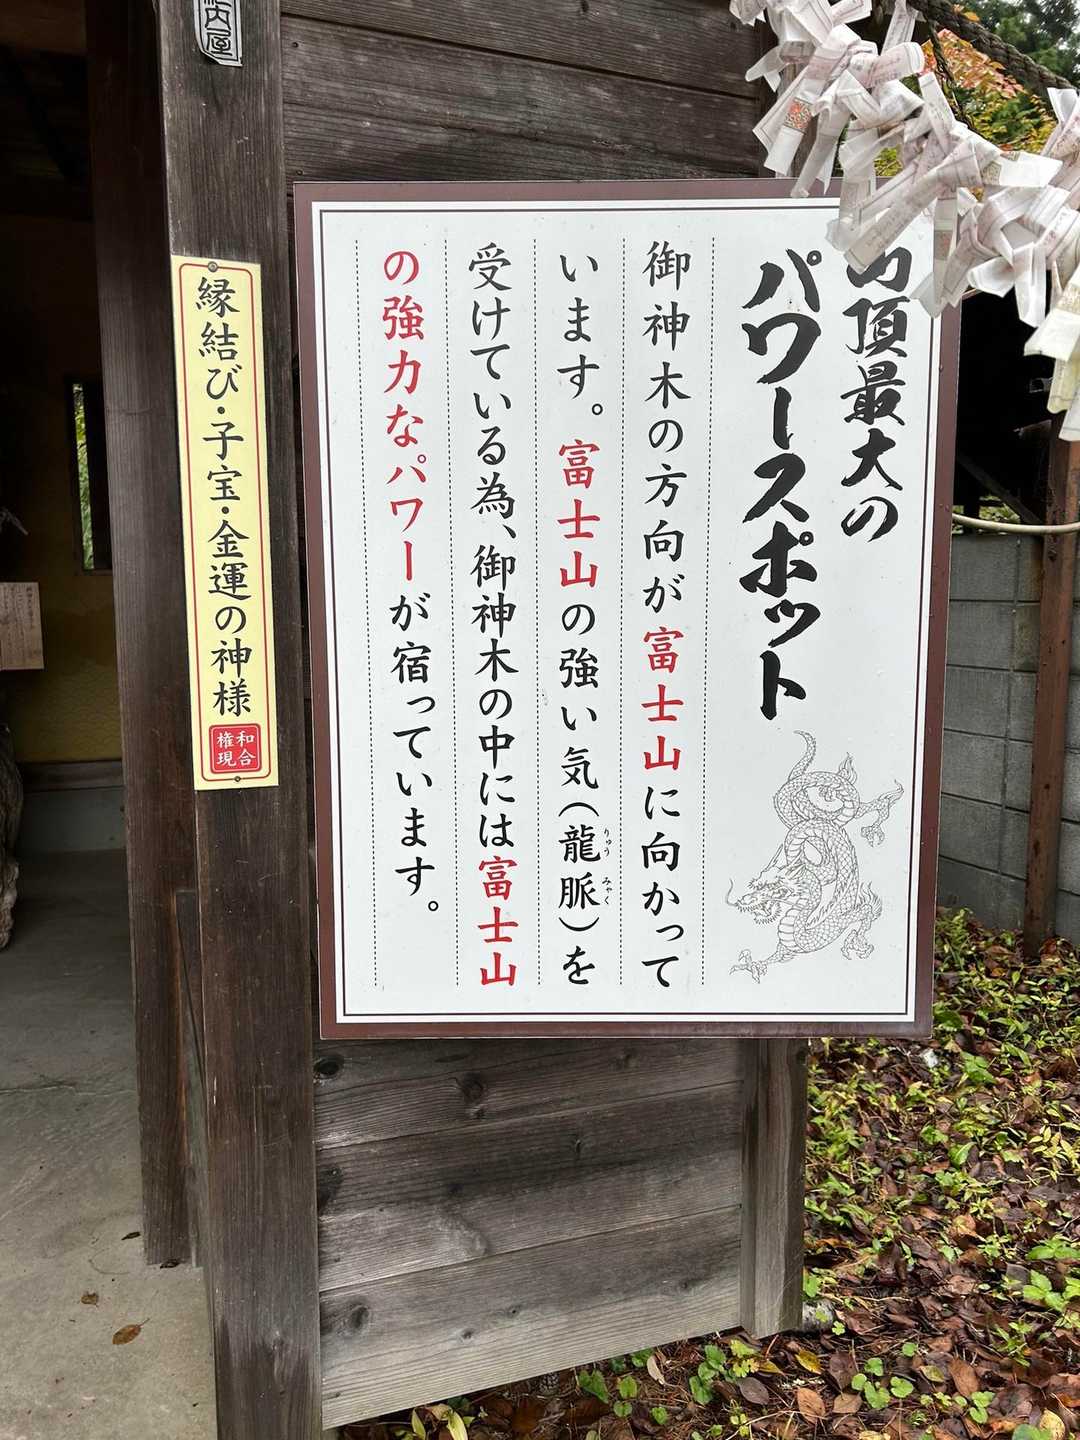 頂最大の
パワースポット
御神木の方向が富士山に向かって
います。富士山の強い気(龍脈)を
りゅう みゃく
受けている為、御神木の中には富士山
の強力なパワーが宿っています。
縁結び・子宝・金運の神様
和合
権現
内屋